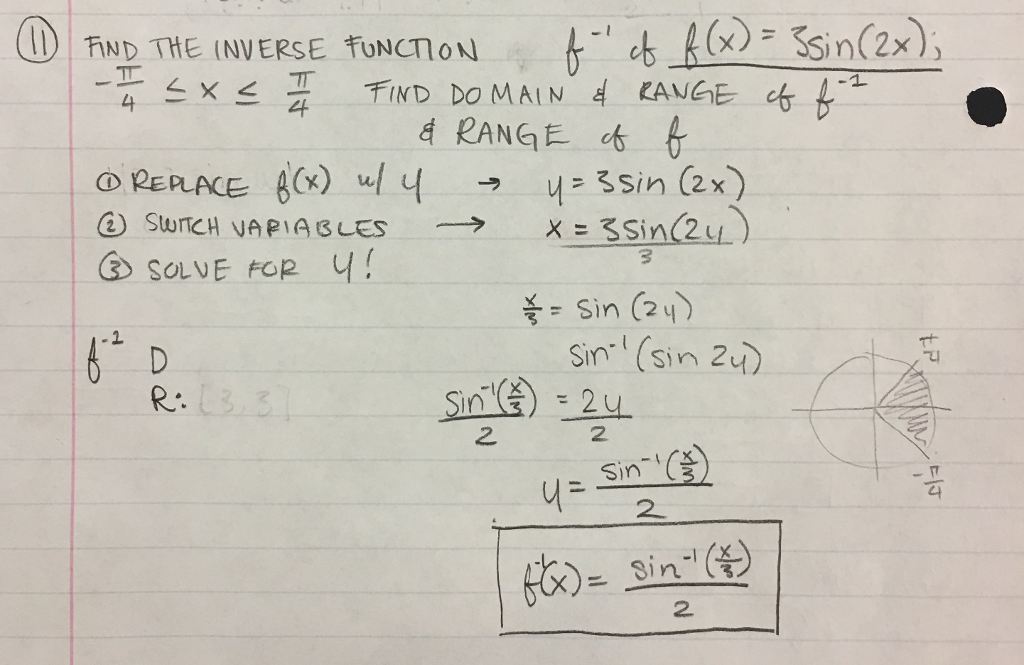 ⑪ FIND THE INVERSE FUNCTION f⁻¹ of f(x) = 3sin(2x);
-π/4 ≤ x ≤ π/4 FIND DOMAIN & RANGE of f⁻¹
& RANGE of f
① REPLACE f(x) w/ y → y = 3 sin (2x)
② SWITCH VARIABLES → x = 3sin(2y)
3
③ SOLVE FOR y!
x/3 = sin (2y)
f⁻¹ D
sin⁻¹ (sin 2y)
R: [3,3]
sin⁻¹(x/3)/2 = 2y/2
π/4
-π/4
y = sin⁻¹(x/3)/2
f⁻¹(x) = sin⁻¹(x/3)/2